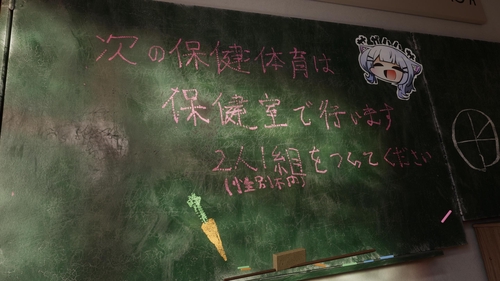 次の保健体育は
保健室で行います
2人1組をつくってください
(性別不問)